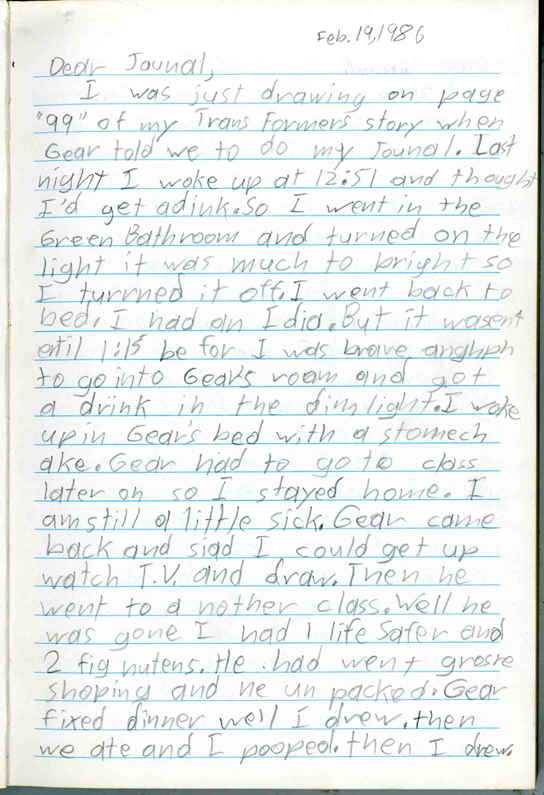 Feb. 19, 1986
Dear Jounal,
I was just drawing on page
"99" of my Trans Formers story when
Gear told we to do my Jounal. Last
night I woke up at 12:51 and thought
I'd get adink. So I went in the
Green Bathroom and turned on the
light it was much to bright so
I turrned it off. I went back to
bed. I had an Idia. But it wasent
entil 1:15 be for I was brave anghph
to go into Gear's room and got
a drink in the dim light. I woke
up in Gear's bed with a stomech
ake. Gear had to go to class
later on so I stayed home. I
am still a little sick. Gear came
back and siad I could get up
watch T.V. and draw. Then he
went to a nother class. Well he
was gone I had 1 life Safer and
2 fig nutens. He had went grosre
shoping and he un packed. Gear
fixed dinner well I drew. then
we ate and I pooped. then I drew.